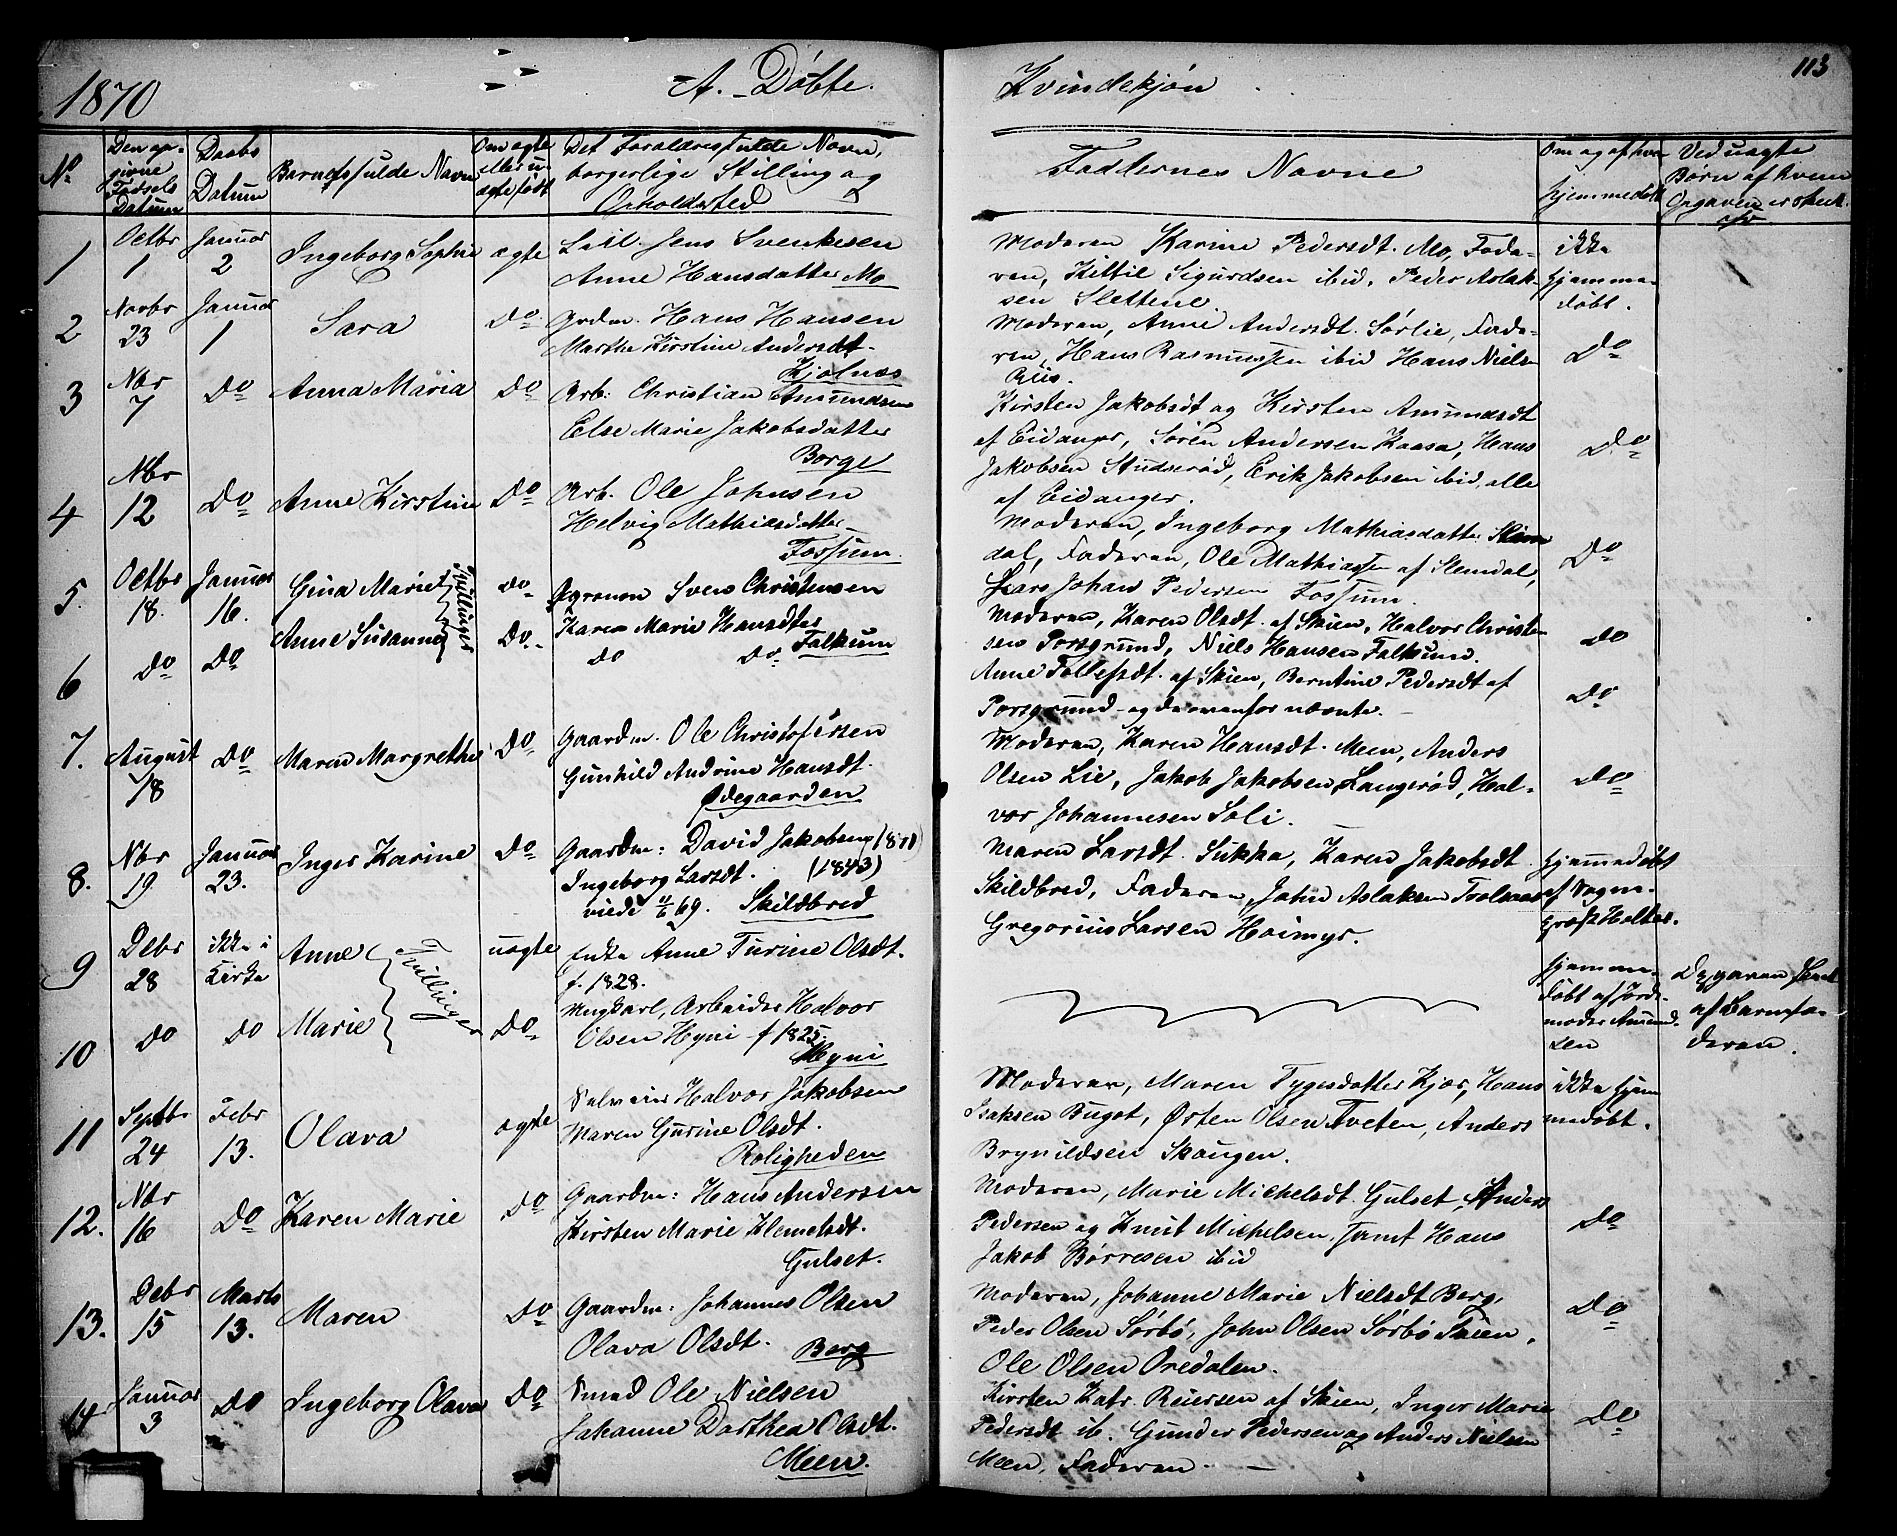 1870
A. Döbte.
Kvindekjön
113
No
Den op-
givne
Födsels
Datum
Daabs
Datum
Barnets fulde Navn
Om ægte
eller u-
ægte født
Det Foraldres fulde Navn,
borgerlige Stilling og
Opholdsted
Faddernes Navne
Om og af hvem
hjemmedöbt
Ved uægte
Børn af hvem
Opgaven er skeet
1 Octbr 1 Januar 2 Ingeborg Sophie ægte
Jens Svenkesen
Anne Hansdatter Mo
Moderen Karine Pedersdt. Mo, Fade-
ren, Kittil Sigurdsen ibid, Peder Aslak-
sen Slettene.
ikke
hjemme-
döbt.
2 Novbr 23 Januar 1 Sara Do
Grdm. Hans Hansen
Marthe Kirstine Andersdt.
Kjølnæs
Moderen, Anne Andersdt. Sørlie, Fade-
ren, Hans Rasmussen ibid Hans Niels
Riis.
Do
3 Nbr 7 Do Anna Maria Do
Arb. Christian Amundsen
Else Marie Jakobsdatter
Borge
Kirsten Jakobsdt og Kirsten Amundsdt
af Eidanger, Søren Andersen Kaasa, Hans
Jakobsen Studserød, Erik Jakobsen ibid, alle
af Eidanger.
Do
4 Nbr 12 Do Anne Kirstine Do
Arb. Ole Johnsen
Helvig Mathiasdatter
Fossum.
Moderen, Ingeborg Mathiasdatter Slem
dal, Faderen, Ole Mathiassen af Slemdal,
Lars Johan Pedersen Fossum.
Do
5. Octbr 18. Januar 16. Gina Marie Tvillinger Do
Agronom Svend Christensen
Karen Marie Hansdtr
Moderen, Karen Olsdt. af Skien, Halvor Christen
sen Porsgrund, Niels Hansen Falkum.
Do
6 Do Do Anne Susanne Do
do do Falkum
Anne Tollefsdt. af Skien, Berntine Pedersdt af
Porsgrund og de ovenfor nævnte.
Do
7. August 18 Do Maren Margrethe Do
Gaardm. Ole Christofersen
Gunhild Andrine Hansdt.
Ødegaarden
Moderen, Karen Hansdt. Meen, Anders
Olsen Lie, Jakob Jakobsen Langerød, Hal-
vor Johannesen Soli.
Do
8. Nbr 19 Januar 23. Inger Karine Do
Gaardm: David Jakobsen
Ingeborg Larsdt. (1843)
viede 69. Skildbred
Maren Larsdt. Sukka, Karen Jakobsdt
Skildbred, Faderen, John Aslaksen
Gregorius Larsen Høimyr.
hjemmedöbt
af Sogne-
præst
9 Debr 28 ikke i Kirke Anne Tvillinger uægte
Enke Anne Turine Olsdt.
f. 1828.
hjemme-
döbt af Jorde-
moder Amund-
sen
Opgaven skeet
af Barnefa-
deren.
10 Do Do Marie Do
Ungkarl, Arbeider Halvor
Olsen Hyni f 1825
Hyni
11 Septbr 24 Febr 13. Olava ægte
Halvor Jakobsen
Maren Gurine Olsdt.
Roligheden
Moderen, Maren Tygesdatter Kjær, Hans
Isaksen Bugot, Østen Olsen Tveten, Anders
Brynildsen Skaugen.
ikke hjem
medöbt.
12. Nbr 16 Do Karen Marie Do
Gaardm: Hans Andersen
Kirsten Marie Klemetsdt.
Gulset.
Moderen, Marie Michelsdt Gulset, Anders
Pedersen og Knut Michelsen, samt Hans
Jakob Børresen ibid
Do
13. Debr 15 Marts 13. Maren Do
Gaardm: Johannes Olsen
Olava Olsdt. Berg
Moderen, Johanne Marie Nielsdt Berg,
Peder Olsen Sørbø, John Olsen Sørbø Skien,
Ole Olsen Bredalen.
Do
14 Januar 3 Do Ingeborg Olava Do
Smed Ole Nielsen
Johanne Dorthea Olsdt.
Meen.
Kirsten Katr. Reiersen af Skien, Inger Marie
Pedersdt ib. Gunder Pedersen og Anders Nielsen
Meen, Faderen.
Do